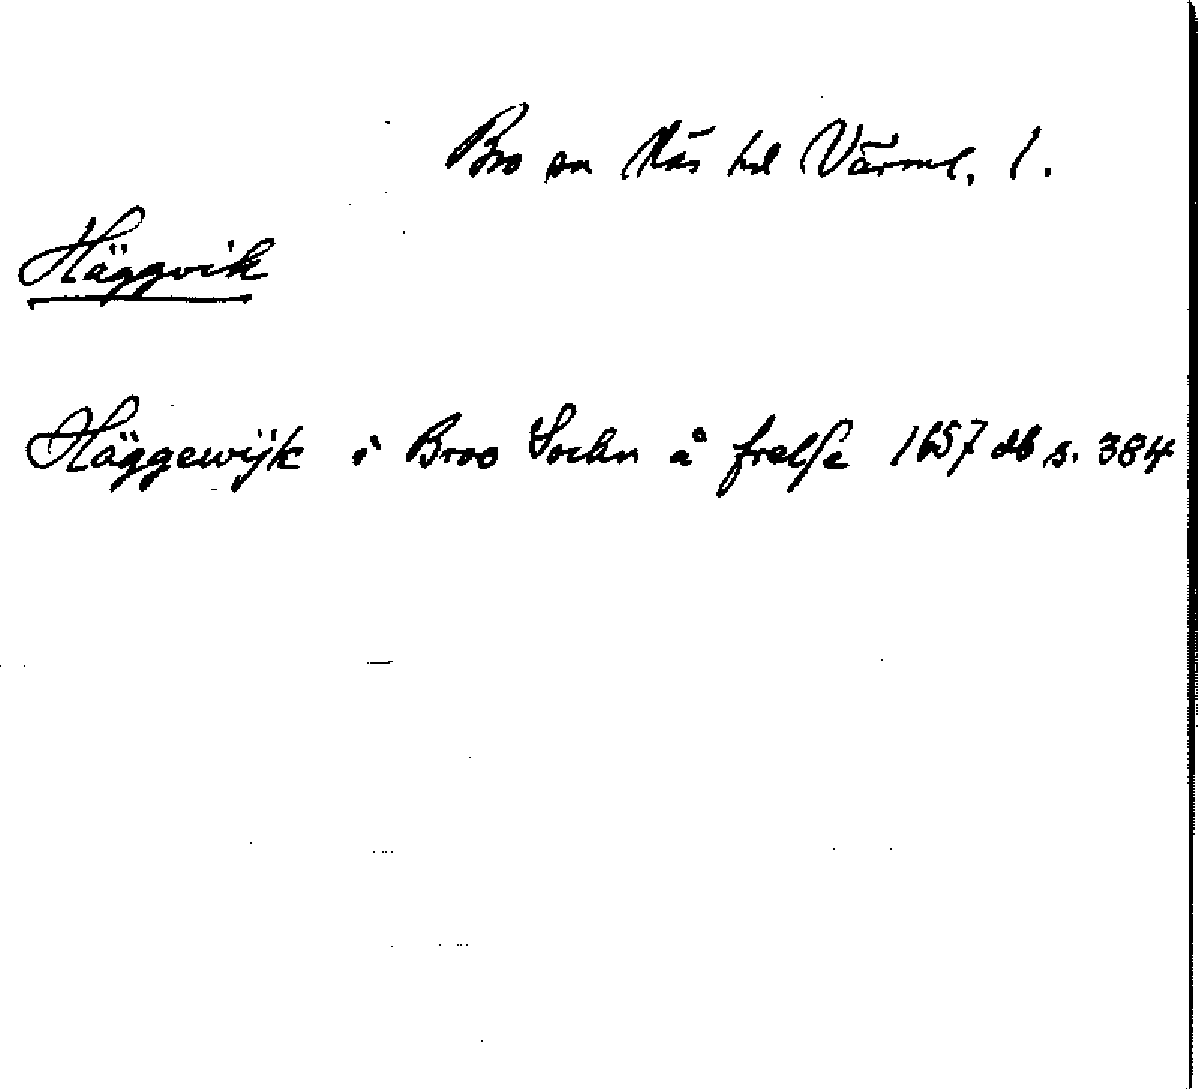 Bro sn Näs hd Värml. l.
Häggvik
Häggewijk i Broo Sochn å frelse 1657 db s. 384